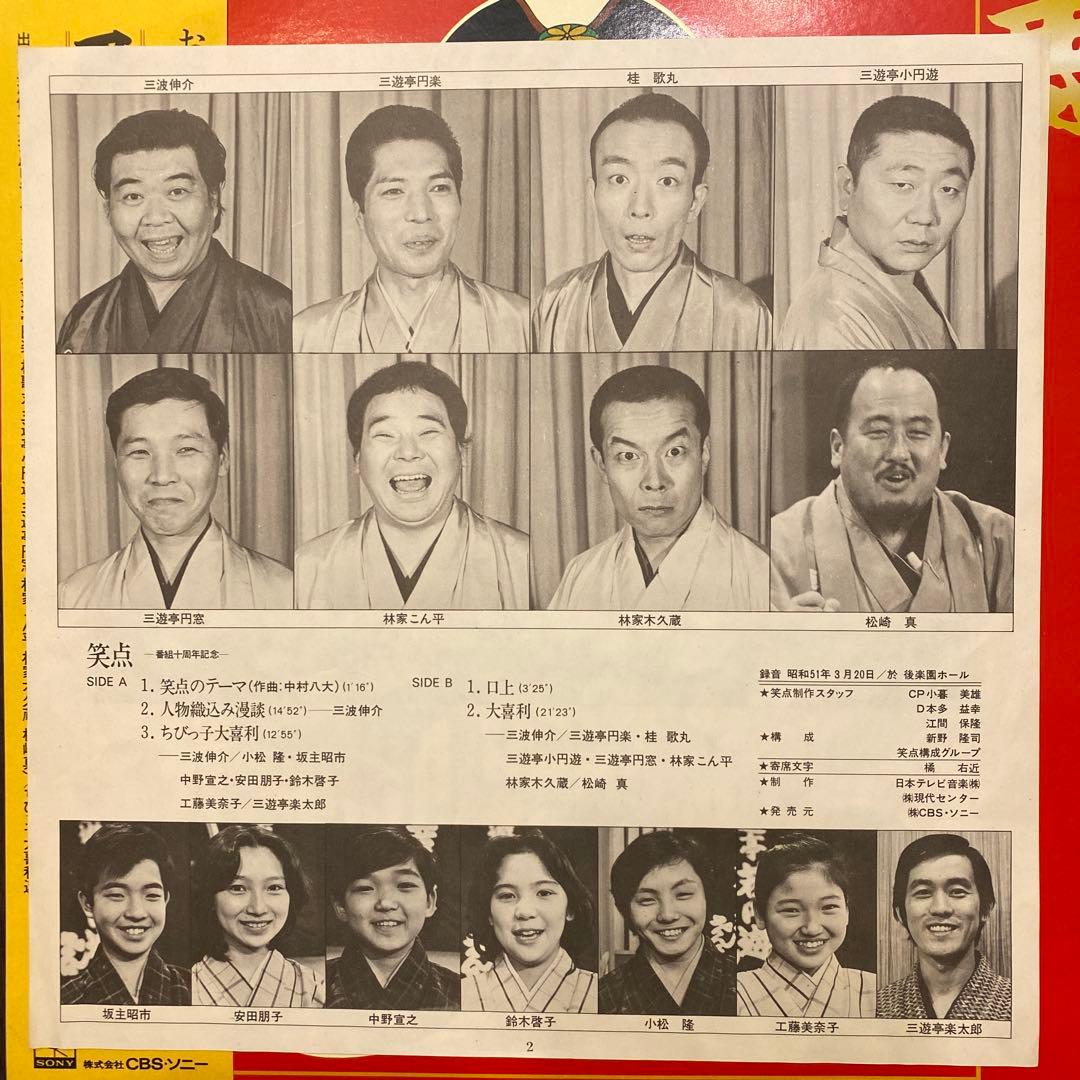 三波伸介
三遊亭円楽
桂 歌丸
三遊亭小円遊
三遊亭円窓
林家こん平
林家木久蔵
松崎 真
笑点 —番組十周年記念—
SIDE A
1. 笑点のテーマ(作曲:中村八大)(1'16")
2. 人物織込み漫談(14'52")——三波伸介
3. ちびっ子大喜利(12'55")
——三波伸介/小松 隆・坂主昭市
中野宣之・安田朋子・鈴木啓子
工藤美奈子/三遊亭楽太郎
SIDE B
1. 口上(3'25")
2. 大喜利(21'23")
——三波伸介/三遊亭円楽・桂 歌丸
三遊亭小円遊・三遊亭円窓・林家こん平
林家木久蔵/松崎 真
録音 昭和51年3月20日/於 後楽園ホール
★笑点制作スタッフ CP小暮 美雄
D本多 益幸
江間 保隆
★構 成 新野 隆司
笑点構成グループ
★寄席文字 橘 右近
★制 作 日本テレビ音楽㈱
㈱現代センター
★発売元 ㈱CBS・ソニー
坂主昭市
安田朋子
中野宣之
鈴木啓子
小松 隆
工藤美奈子
三遊亭楽太郎
2
SONY 株式会社 CBS・ソニー